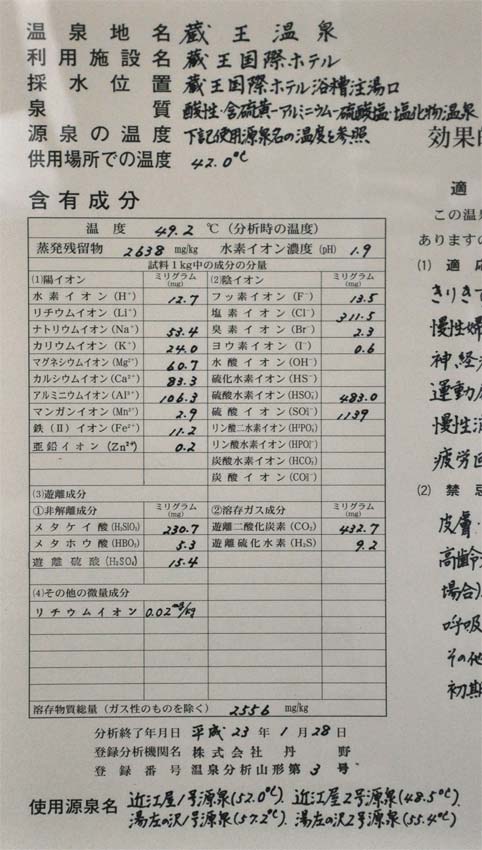 温泉地名 蔵王温泉
利用施設名 蔵王国際ホテル
採水位置 蔵王国際ホテル浴槽注湯口
泉質 酸性・含硫黄-アルミニウム-硫酸塩・塩化物温泉
源泉の温度 下記使用源泉名の温度を参照
供用場所での温度 42.0℃
含有成分
温度 49.2 ℃(分析時の温度)
蒸発残留物 2638 mg/kg 水素イオン濃度(pH) 1.9
試料1kg中の成分の分量
(1)陽イオン ミリグラム(mg) (2)陰イオン ミリグラム(mg)
水素イオン(H⁺) 12.7 フッ素イオン(F⁻) 13.5
リチウムイオン(Li⁺) 塩素イオン(Cl⁻) 311.5
ナトリウムイオン(Na⁺) 53.4 臭素イオン(Br⁻) 2.3
カリウムイオン(K⁺) 24.0 ヨウ素イオン(I⁻) 0.6
マグネシウムイオン(Mg²⁺) 60.7 水酸イオン(OH⁻)
カルシウムイオン(Ca²⁺) 83.3 硫化水素イオン(HS⁻)
アルミニウムイオン(Al³⁺) 106.3 硫酸水素イオン(HSO₄⁻) 483.0
マンガンイオン(Mn²⁺) 2.9 硫酸イオン(SO₄²⁻) 1139
鉄(II)イオン(Fe²⁺) 11.2 リン酸二水素イオン(H₂PO₄⁻)
亜鉛イオン(Zn²⁺) 0.2 リン酸水素イオン(HPO₄²⁻)
炭酸水素イオン(HCO₃⁻)
炭酸イオン(CO₃²⁻)
(3)遊離成分
①非解離成分 ミリグラム(mg) ②溶存ガス成分 ミリグラム(mg)
メタケイ酸(H₂SiO₃) 230.7 遊離二酸化炭素(CO₂) 432.7
メタホウ酸(HBO₂) 5.3 遊離硫化水素(H₂S) 9.2
遊離硫酸(H₂SO₄) 15.4
(4)その他の微量成分
リチウムイオン 0.02mg/kg
溶存物質総量(ガス性のものを除く) 2556 mg/kg
分析終了年月日 平成23年1月28日
登録分析機関名 株式会社丹野
登録番号 温泉分析山形第3号
使用源泉名 近江屋1号源泉(52.0℃)、近江屋2号源泉(48.5℃)、
湯左の沢1号源泉(57.2℃)、湯左の沢2号源泉(55.4℃)
効果的
適
この温泉
ありますの
(1) 適応
きりき
慢性婦
神経
運動
慢性消
疲労回
(2) 禁忌
皮膚・
高齢
場合)
呼吸
その他
初期